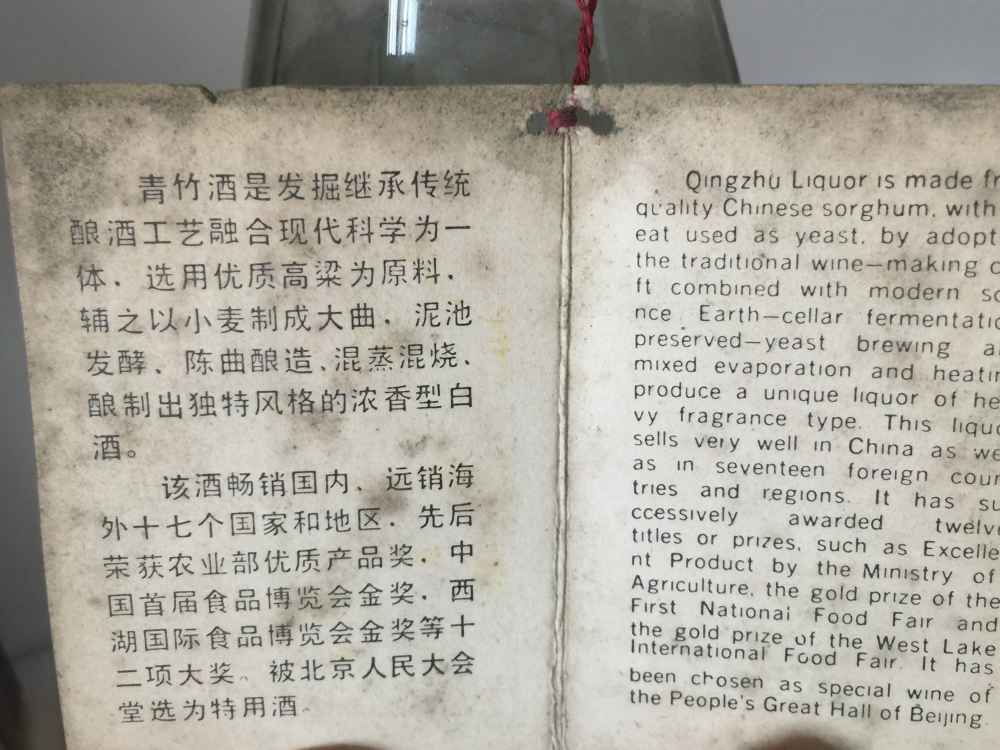 青竹酒是发掘继承传统
酿酒工艺融合现代科学为一
体，选用优质高粱为原料，
辅之以小麦制成大曲，泥池
发酵、陈曲酿造、混蒸混烧、
酿制出独特风格的浓香型白
酒。
该酒畅销国内、远销海
外十七个国家和地区，先后
荣获农业部优质产品奖，中
国首届食品博览会金奖，西
湖国际食品博览会金奖等十
二项大奖、被北京人民大会
堂选为特用酒.
Qingzhu Liquor is made
quality Chinese sorghum, with
eat used as yeast, by adopt
the traditional wine—making
ft combined with modern
nce. Earth—cellar
preserved—yeast brewing
mixed evaporation and
produce a unique liquor of
vy fragrance type. This
sells very well in China as
as in seventeen foreign coun
tries and regions. It has su
ccessively awarded
titles or prizes, such as Excelle
nt Product by the Ministry of
Agriculture, the gold prize of the
First National Food Fair and
the gold prize of the West Lake
International Food Fair. It has
been chosen as special wine of
the People's Great Hall of Beijing.